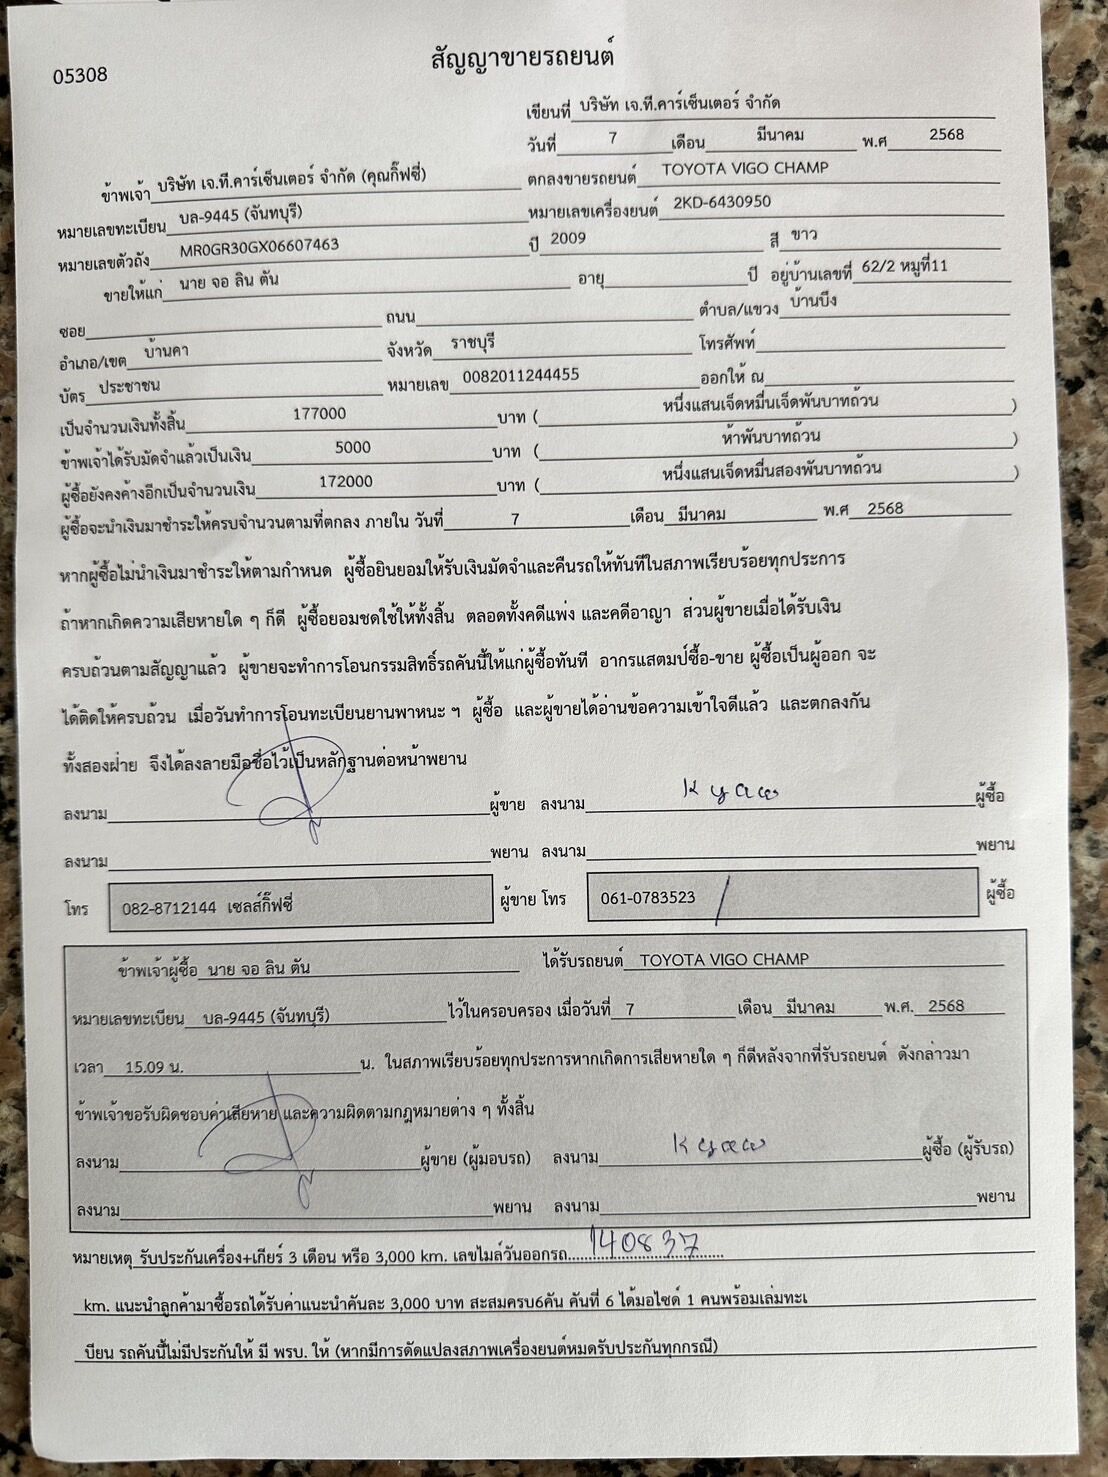 05308
สัญญาขายรถยนต์
เขียนที่ บริษัท เจ.ที.คาร์เซ็นเตอร์ จำกัด
วันที่ 7 เดือน มีนาคม พ.ศ 2568
ข้าพเจ้า บริษัท เจ.ที.คาร์เซ็นเตอร์ จำกัด (คุณกิ๊ฟซี่) ตกลงขายรถยนต์ TOYOTA VIGO CHAMP
หมายเลขทะเบียน บล-9445 (จันทบุรี) หมายเลขเครื่องยนต์ 2KD-6430950
หมายเลขตัวถัง MR0GR30GX06607463 ปี 2009 สี ขาว
ขายให้แก่ นาย จอ ลิน ตัน อายุ ปี อยู่บ้านเลขที่ 62/2 หมูที่11
ซอย ถนน ตำบล/แขวง บ้านบึง
อำเภอ/เขต บ้านคา จังหวัด ราชบุรี โทรศัพท์
บัตร ประชาชน หมายเลข 0082011244455 ออกให้ ณ
เป็นจำนวนเงินทั้งสิ้น 177000 บาท ( หนึ่งแสนเจ็ดหมื่นเจ็ดพันบาทถ้วน )
ข้าพเจ้าได้รับมัดจำแล้วเป็นเงิน 5000 บาท ( ห้าพันบาทถ้วน )
ผู้ซื้อยังคงค้างอีกเป็นจำนวนเงิน 172000 บาท ( หนึ่งแสนเจ็ดหมื่นสองพันบาทถ้วน )
ผู้ซื้อจะนำเงินมาชำระให้ครบจำนวนตามที่ตกลง ภายใน วันที่ 7 เดือน มีนาคม พ.ศ 2568
หากผู้ซื้อไม่นำเงินมาชำระให้ตามกำหนด ผู้ซื้อยินยอมให้รับเงินมัดจำและคืนรถให้ทันทีในสภาพเรียบร้อยทุกประการ
ถ้าหากเกิดความเสียหายใด ๆ ก็ดี ผู้ซื้อยอมชดใช้ให้ทั้งสิ้น ตลอดทั้งคดีแพ่ง และคดีอาญา ส่วนผู้ขายเมื่อได้รับเงิน
ครบถ้วนตามสัญญาแล้ว ผู้ขายจะทำการโอนกรรมสิทธิ์รถคันนี้ให้แก่ผู้ซื้อทันที อากรแสตมป์ซื้อ-ขาย ผู้ซื้อเป็นผู้ออก จะ
ได้ติดให้ครบถ้วน เมื่อวันทำการโอนทะเบียนยานพาหนะ ฯ ผู้ซื้อ และผู้ขายได้อ่านข้อความเข้าใจดีแล้ว และตกลงกัน
ทั้งสองฝ่าย จึงได้ลงลายมือชื่อไว้เป็นหลักฐานต่อหน้าพยาน
ลงนาม ผู้ขาย ลงนาม Kyaw ผู้ซื้อ
ลงนาม พยาน ลงนาม พยาน
โทร 082-8712144 เซลส์กิ๊ฟซี่ ผู้ขาย โทร 061-0783523 / ผู้ซื้อ
ข้าพเจ้าผู้ซื้อ นาย จอ ลิน ตัน ได้รับรถยนต์ TOYOTA VIGO CHAMP
หมายเลขทะเบียน บล-9445 (จันทบุรี) ไว้ในครอบครอง เมื่อวันที่ 7 เดือน มีนาคม พ.ศ. 2568
เวลา 15.09 น. น. ในสภาพเรียบร้อยทุกประการหากเกิดการเสียหายใด ๆ ก็ดีหลังจากที่รับรถยนต์ ดังกล่าวมา
ข้าพเจ้าขอรับผิดชอบค่าเสียหาย และความผิดตามกฎหมายต่าง ๆ ทั้งสิ้น
ลงนาม ผู้ขาย (ผู้มอบรถ) ลงนาม Kyaw ผู้ซื้อ (ผู้รับรถ)
ลงนาม พยาน ลงนาม พยาน
หมายเหตุ รับประกันเครื่อง+เกียร์ 3 เดือน หรือ 3,000 km. เลขไมล์วันออกรถ 140837
km. แนะนำลูกค้ามาซื้อรถได้รับค่าแนะนำคันละ 3,000 บาท สะสมครบ6คัน คันที่ 6 ได้มอไซด์ 1 คนพร้อมเล่มทะเ
บียน รถคันนี้ไม่มีประกันให้ มี พรบ. ให้ (หากมีการดัดแปลงสภาพเครื่องยนต์หมดรับประกันทุกกรณี)